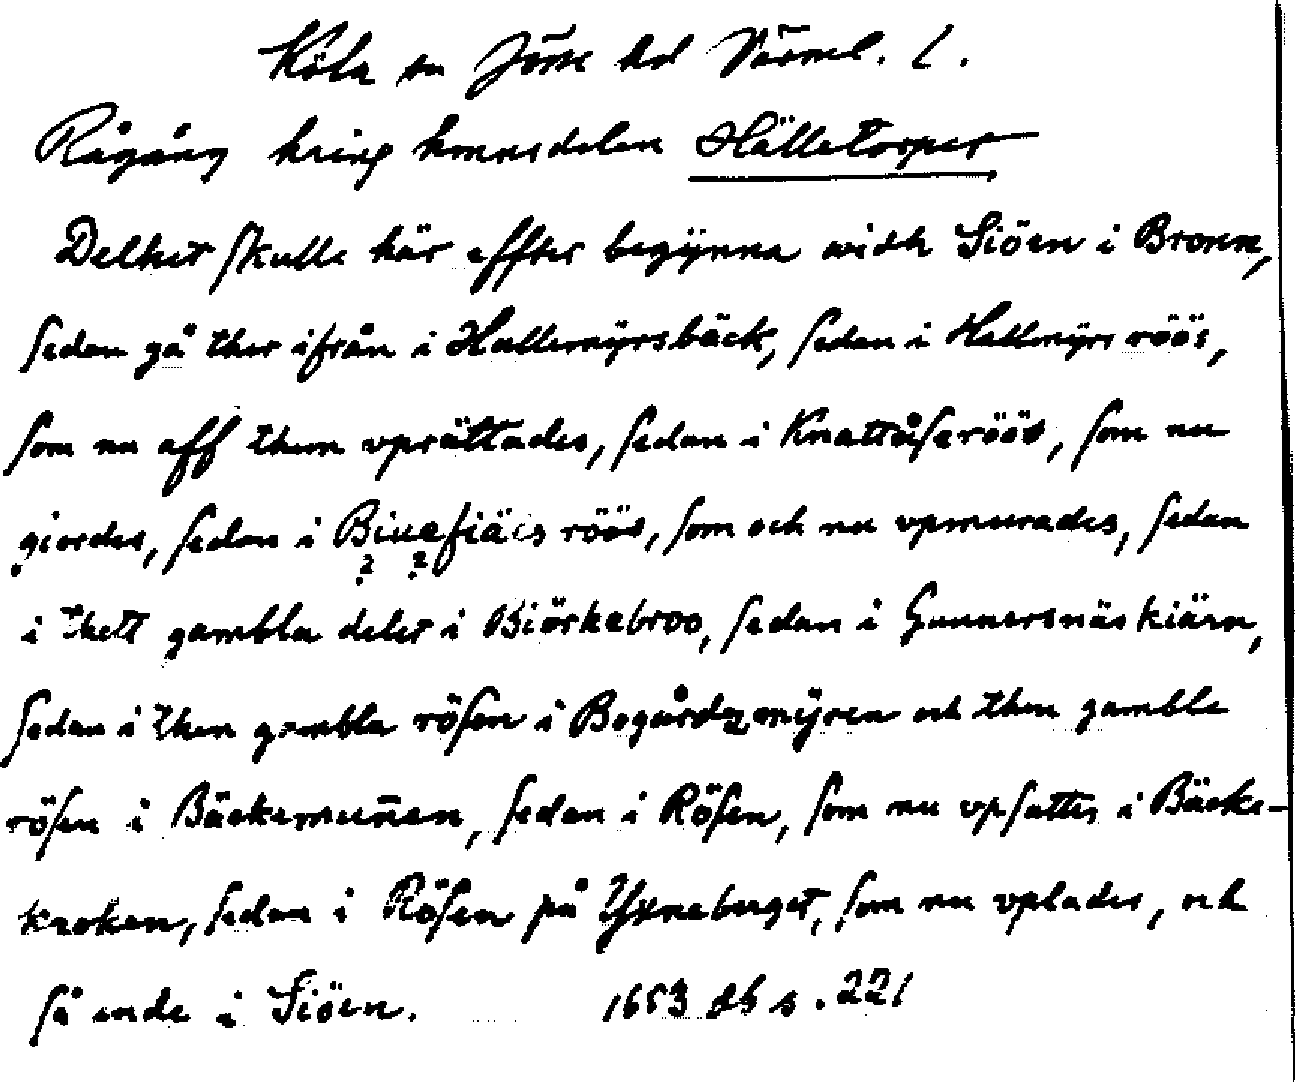 Köla sn Jösse hd Värml. l.
Rågång kring hemmdelen Hälletorpet
Delhet skulle här effter begÿnna widh Siöen i Bronn,
sedan gå ther ifrån i Hallemÿrsbäck, sedan i Hallmÿrs röös,
som nu aff them vprättades, sedan i Knattåseröös, som nu
giordes, sedan i röös, som och nu vpmurades, sedan
? ?
i thett gambla delet i Biörkebroo, sedan i Gunnersnäs kiärn,
sedan i then gambla rösen i Bogårdzmÿren och then gamble
rösen i Bäckemuñen, sedan i Rösen, som nu vpsattes i Bäcke-
kroken, sedan i Rösen på Yxneberget, som nu vplades, och
så ende i Siöen. 1653 db s. 221